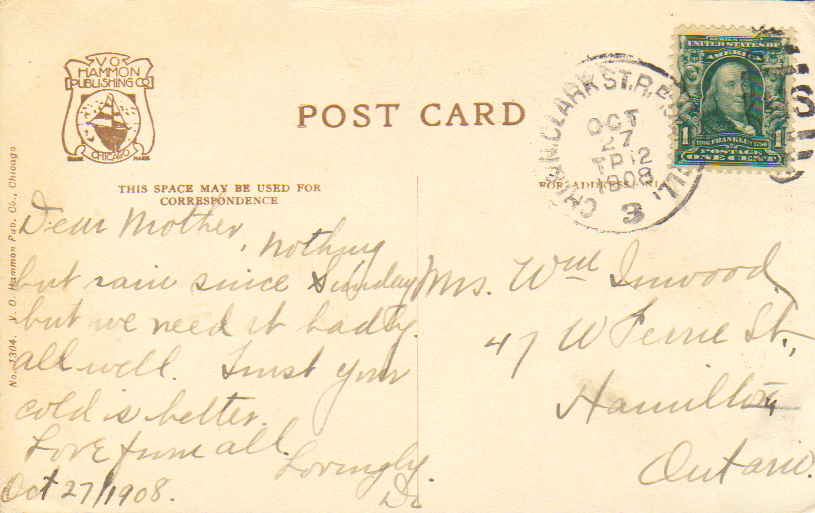 V.O.
HAMMON
PUBLISHING CO
CHICAGO
TRADE MARK
POST CARD
THIS SPACE MAY BE USED FOR
CORRESPONDENCE
FOR ADDRESS ONLY
No. 1304. V. O. Hammon Pub. Co., Chicago
CHI N. CLARK ST. R.P.O.
OCT
27
TP 12
1908
3
ILL.
UNITED STATES OF
AMERICA
1 FRANKLIN 1
POSTAGE
ONE CENT
Dear Mother, Nothing
but rain since Sunday
but we need it badly.
all well. Trust your
cold is better.
Love from all.
Lovingly.
Oct 27/1908.
Mrs. Wm Inwood
47 W St.,
Hamilton
Ontario.